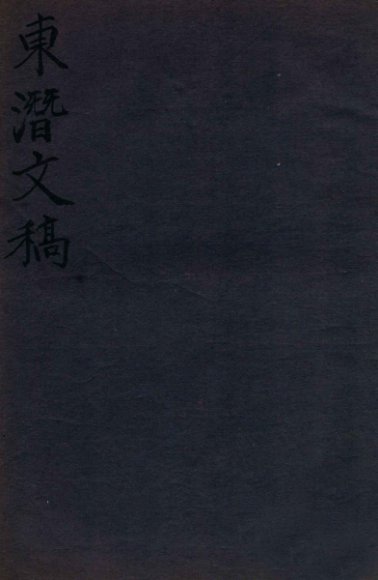 東潛文稿